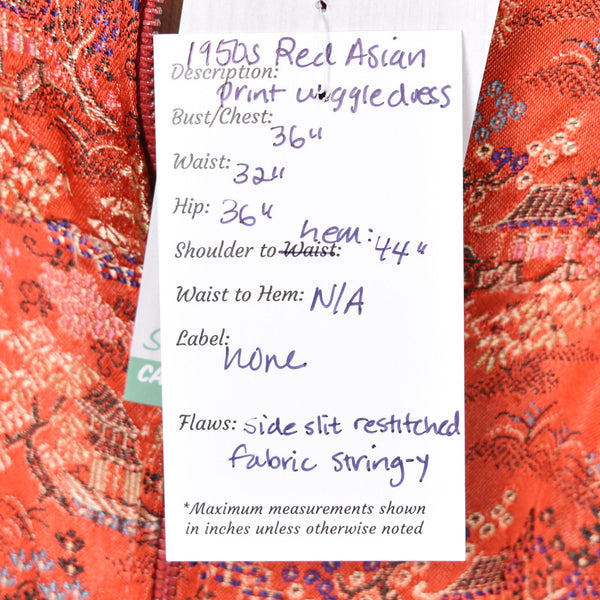 1950s Red Asian
Description:
print wiggledress
Bust/Chest:
36"
Waist: 32"
Hip: 36"
hem:
Shoulder to Waist: 44"
Waist to Hem: N/A
Label:
none
Flaws: side slit restitched
fabric string-y
*Maximum measurements shown
in inches unless otherwise noted